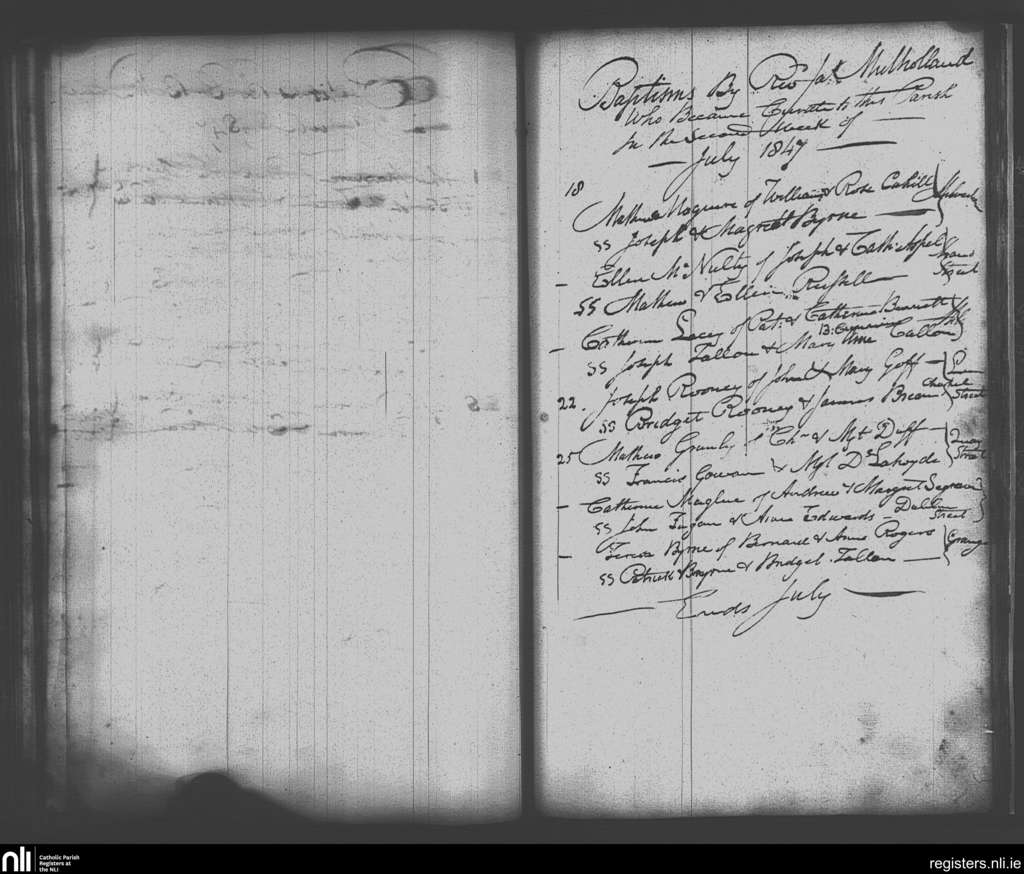 Baptisms By Rev Jas Mulholland
Who Became Curate to this Parish
In the Second Week of
— July 1847 —
18
Mathew of William & Rose Cahill
SS Joseph & Magret Byrne —
— Ellen McNulty of Joseph & Cath
Street
SS Mathew & Ellen Russell
— Catherine Lacey of Pat. & Catherine Bennett
SS Joseph Tallon & Mary Ann Callon
22. Joseph Rooney of John & Mary Goff —
Chapel Street
SS Bridget Rooney & James
25 Mathew of Chr & Mgt Duff —
Quay Street
SS Francis Gowan & Mgt
— Catherine of Andrew & Margret Segrave
SS John Fagan & Anne Edwards — Dublin Street
— Teresa Byrne of Bernard & Anne Rogers
Grange
SS Patrick Byrne & Bridget Tallon —
— Ends July —
nli
Catholic Parish
Registers at
the NLI
registers.nli.ie